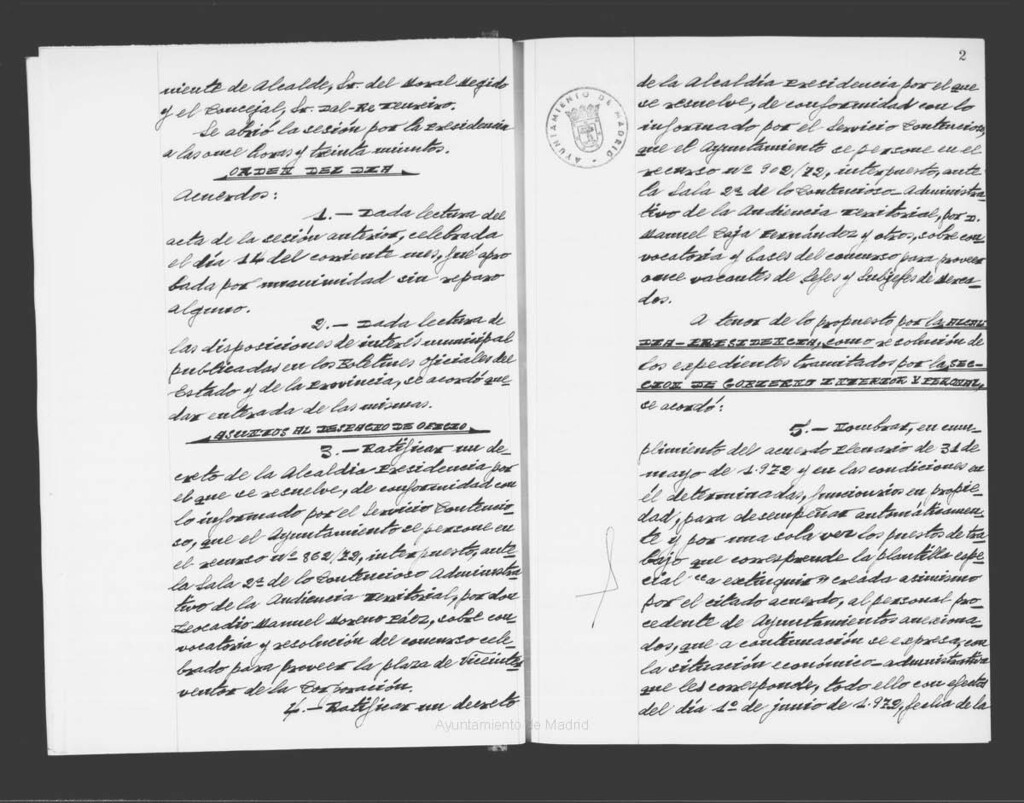 niente de Alcalde, Sr. del Moral Megido
y el Concejal, Sr. Dal-Re Tenreiro.
Se abrió la sesión por la Presidencia
a las once horas y treinta minutos.
ORDEN DEL DIA
Acuerdos:
1.- Dada lectura del
acta de la sesión anterior, celebrada
el día 14 del corriente mes, fué apro
bada por unanimidad sin reparo
alguno.
2.- Dada lectura de
las disposiciones de interés municipal
publicadas en los Boletines Oficiales del
Estado y de la Provincia, se acordó que-
dar enterada de las mismas.
ASUNTOS AL DESPACHO DE OFICIO
3.- Ratificar un de-
creto de la Alcaldía Presidencia por
el que se resuelve, de conformidad con
lo informado por el Servicio Contencio-
so, que el Ayuntamiento se persone en
el recurso nº 862/72, interpuesto, ante
la Sala 2ª de lo Contencioso Administra-
tivo de la Audiencia Territorial, por don
Leocadio Manuel Moreno Páez, sobre con
vocatoria y resolución del concurso cele-
brado para proveer la plaza de Viceinter
ventor de la Corporación.
4.- Ratificar un decreto
2
AYUNTAMIENTO DE MADRID
de la Alcaldía Presidencia por el que
se resuelve, de conformidad con lo
informado por el Servicio Contencioso,
que el Ayuntamiento se persone en el
recurso nº 902/72, interpuesto, ante
la Sala 2ª de lo Contencioso-Administra-
tivo de la Audiencia Territorial, por D.
Manuel Caja Fernández y otros, sobre con
vocatoria y bases del concurso para proveer
once vacantes de Jefes y Subjefes de Merca-
dos.
A tenor de lo propuesto por la ALCAL
DIA-PRESIDENCIA, como resolución de
los expedientes tramitados por la SEC-
CION DE GOBIERNO INTERIOR Y PERSONAL,
se acordó:
5.- Nombrar, en cum-
plimiento del acuerdo Plenario de 31 de
mayo de 1.972 y en las condiciones en
el determinadas, funcionarios en propie-
dad, para desempeñar automáticamen-
te y por una sola vez los puestos de tra-
bajo que corresponde la plantilla espe-
cial "a extinguir" creada asimismo
por el citado acuerdo, al personal pro-
cedente de Ayuntamientos anexiona-
dos, que a continuación se expresa, con
la situación económico-administrativa
que les corresponde, todo ello con efectos
del día 1º de junio de 1.972, fecha de la
Ayuntamiento de Madrid